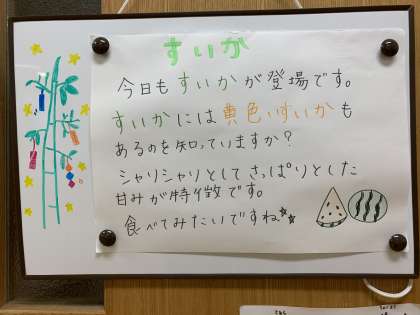 すいか
今日も すいかが登場です。
すいかには 黄色いすいかも
あるのを知っていますか?
シャリシャリとして さっぱりとした
甘みが特徴です。
食べてみたいですね